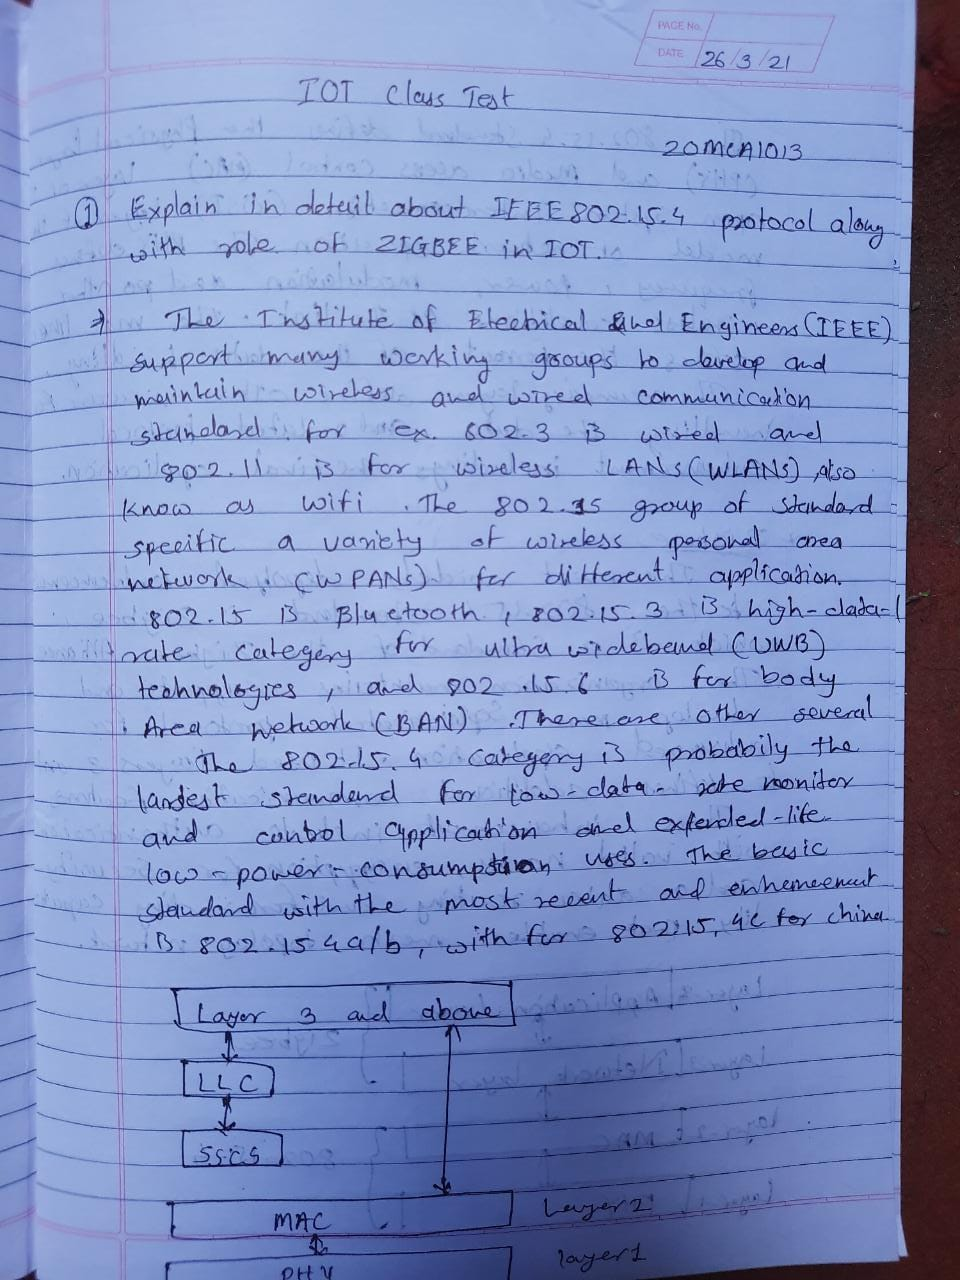 PAGE No.
DATE 26/3/21
IOT Class Test
20MCA1013
① Explain in detail about IEEE 802.15.4 protocol along
with role of ZIGBEE in IOT.
→ The Institute of Electrical and Engineers (IEEE)
support many working groups to develop and
maintain wireless and wired communication
standard. for ex. 802.3 is wired and
802.11 is for wireless LANs (WLANs), also
know as wifi. The 802.15 group of standard
specific a variety of wireless personal area
network (WPANs) for different application.
802.15 is Bluetooth, 802.15.3 is high-data-
rate category for ultra widebend (UWB)
technologies, and 802.15.6 is for body
Area network (BAN). There are other several
The 802.15.4 category is probabily the
landest standard for low-data-rate monitor
and control application and extended-life
low-power-consumption uses. The basic
standard with the most recent and enhemcement
is 802.15 4a/b, with for 802.15.4c for china
Layer 3 and above
LLC
SSCS
MAC Layer 2
PHY layer 1